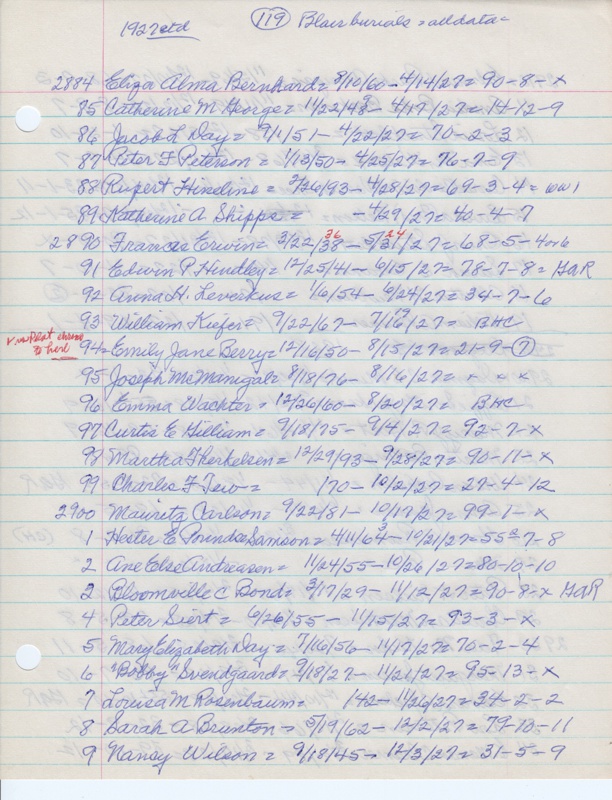 1927 ctd (119) Blair burials = all data =
2884 Eliza Alma Bernhard = 8/10/60 - 4/14/27 = 90-8-x
85 Catherine M. George = 11/22/48 - 4/17/27 = 14-12-9
86 Jacob L Day = 9/1/51 - 4/22/27 = 70-2-3
87 Peter F Peterson = 1/13/50 - 4/25/27 = 76-7-9
88 Rupert Hineline = 2/26/93 - 4/28/27 = 69-3-4 = WW1
89 Katherine A Shipps = - 4/29/27 = 40-4-7
36 24
2890 Frances Erwin = 3/22/38 - 5/31/27 = 68-5-4 or 6
91 Edwin P. Hindley = 12/25/41 - 6/15/27 = 78-7-8 = GAR
92 Anna H. Leverkus = 1/6/54 - 6/24/27 = 34-7-6
93 William Kufer = 9/22/67 - 7/16/27 = BHC
94 = Emily Jane Berry = 12/16/50 - 8/15/27 = 21-9-(7)
to her
95 Joseph McManigal = 8/18/76 - 8/16/27 = x x x
96 Emma Wachter = 12/26/60 - 8/20/27 = BHC
97 Curtis E Gilliam = 9/18/75 - 9/4/27 = 92-7-x
98 Martha Therkelsen = 12/29/93 - 9/28/27 = 90-11-x
99 Charles F Tew = /70 - 10/2/27 = 27-4-12
2900 Mauritz Carlson = 9/22/81 - 10/17/27 = 99-1-x
1 Hester E Poundes Samson = 4/11/64 - 10/21/27 = 55-7-8
2 Ane Else Andreasen = 11/24/55 - 10/26/27 = 80-10-10
3 Bloomville C Bond = 3/17/29 - 11/12/27 = 90-8-x GAR
4 Peter Siert = 6/26/55 - 11/15/27 = 93-3-x
5 Mary Elizabeth Day = 7/16/56 - 11/17/27 = 70-2-4
6 "Bobby" Svendgaard = 9/18/27 - 11/21/27 = 95-13-x
7 Louisa M Rosenbaum = /42 - 11/26/27 = 34-2-2
8 Sarah A Brunton = 5/19/62 - 12/2/27 = 79-10-11
9 Nancy Wilson = 9/18/45 - 12/3/27 = 31-5-9